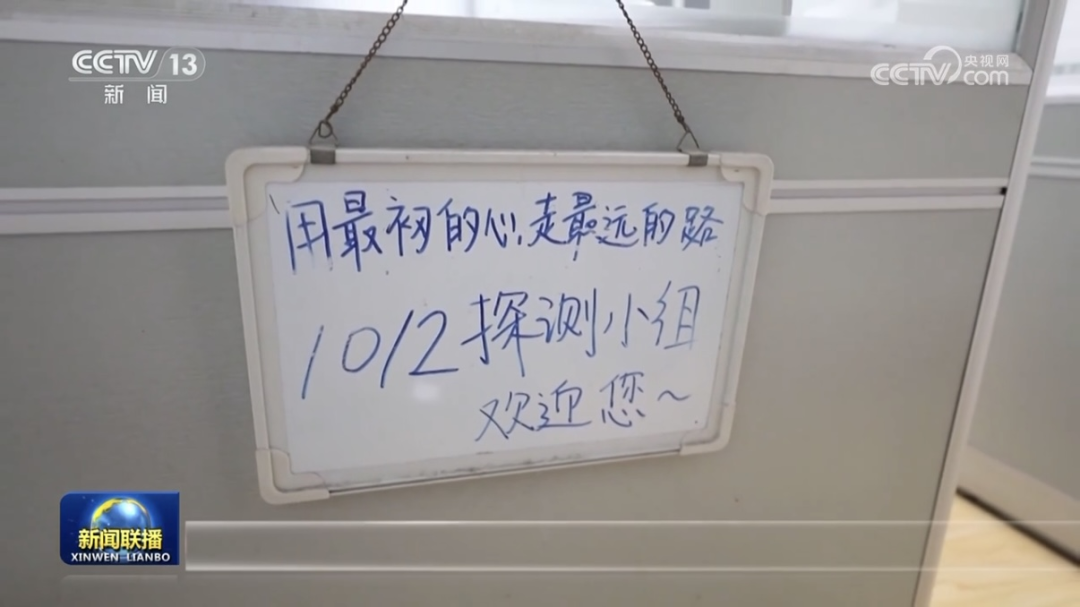 CCTV 13
新闻
央视网
CCTV.com
用最初的心,走最远的路
1012探测小组
欢迎您~
新闻联播
XINWEN LIANBO